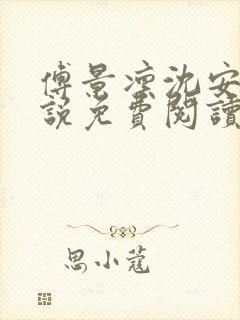 傅景凛沈安
說免費閱讀
思小蔻